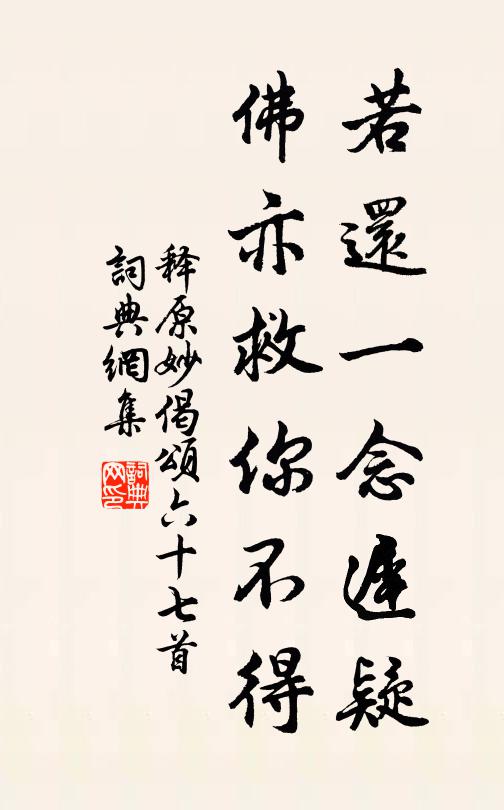 若還一念遲疑
佛亦救你不得
释原妙偈頌六十七首
詞典網集
詞典網印